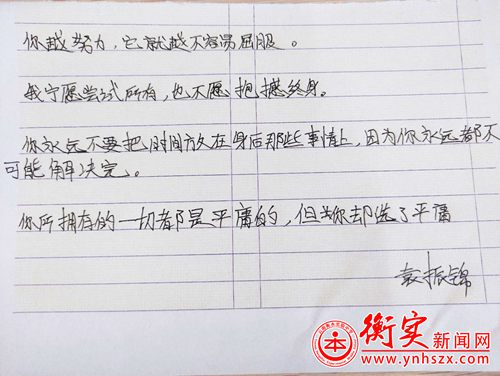 你越努力，它就越不容易屈服。
我宁愿尝试所有，也不愿抱撼终身。
你永远不要把时间放在身后那些事情上，因为你永远都不
可能解决完。
你所拥有的一切都是平庸的，但你却选了平庸
袁振锦
衡实新闻网
www.ynhszx.com